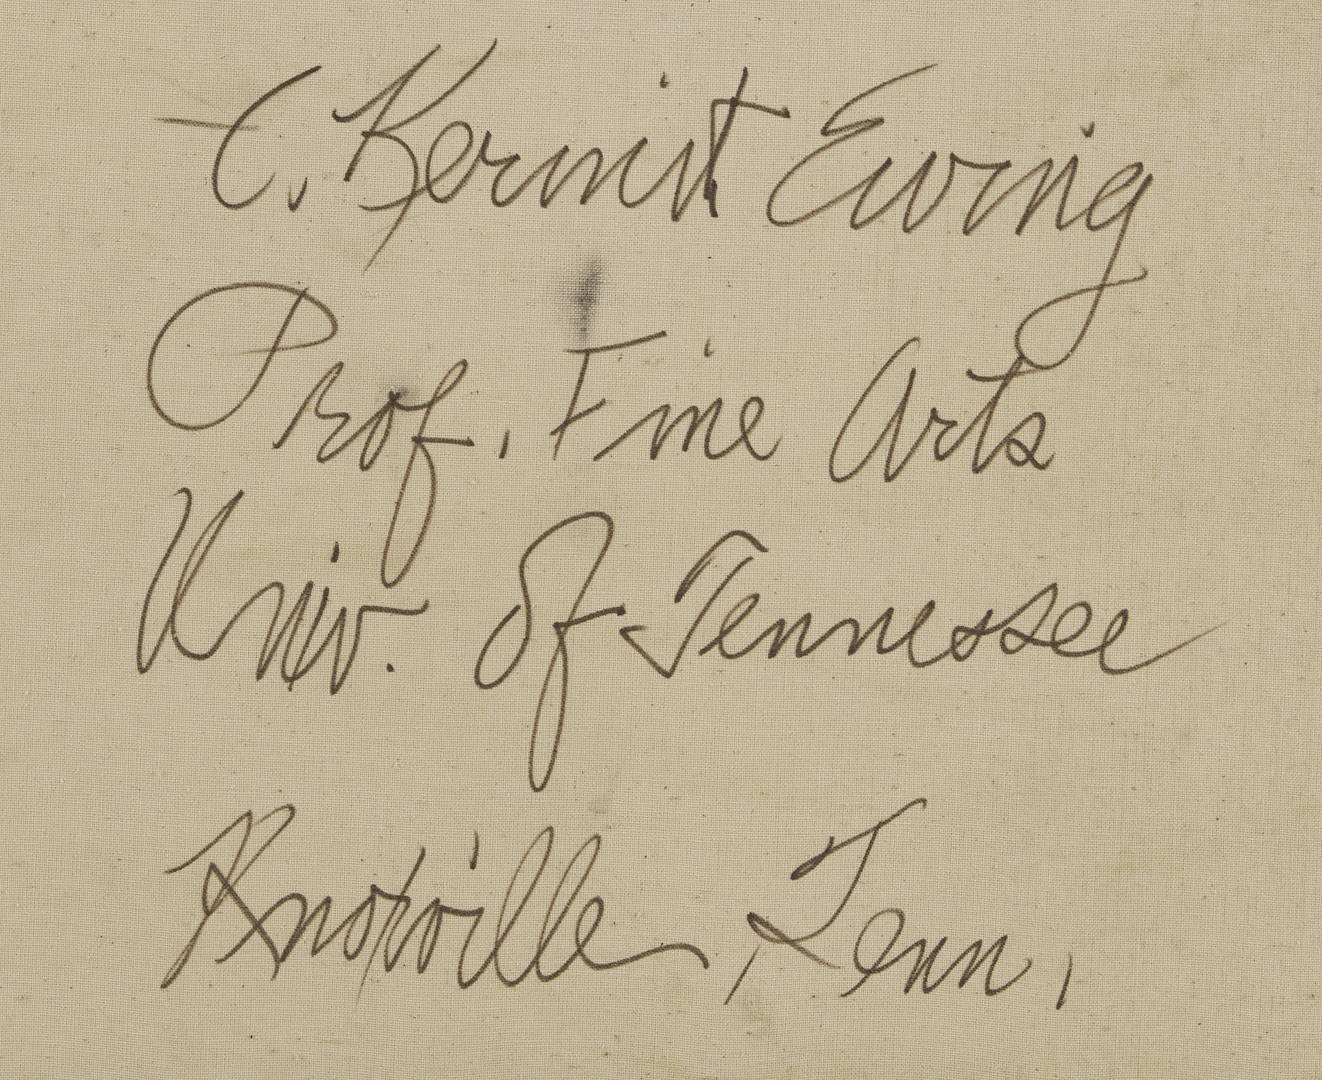 C. Kermit Ewing
Prof. Fine Arts
Univ. of Tennessee
Knoxville, Tenn.